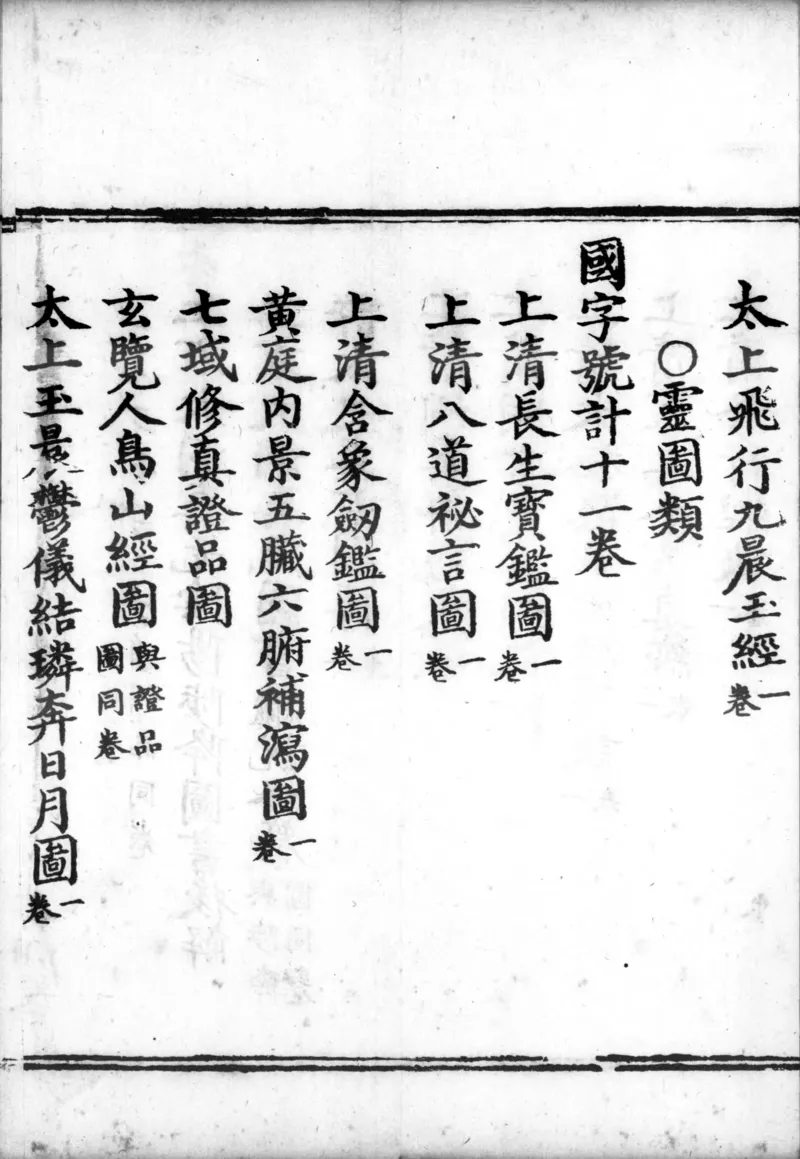 太上飛行九晨玉經一卷
○靈圖類
國字號計十一卷
上清長生寶鑑圖一卷
上清八道祕言圖一卷
上清含象劒鑑圖一卷
黃庭內景五臟六腑補瀉圖一卷
七域修真證品圖
玄覽人鳥山經圖與證品圖同卷
太上玉景鬱儀結璘奔日月圖一卷